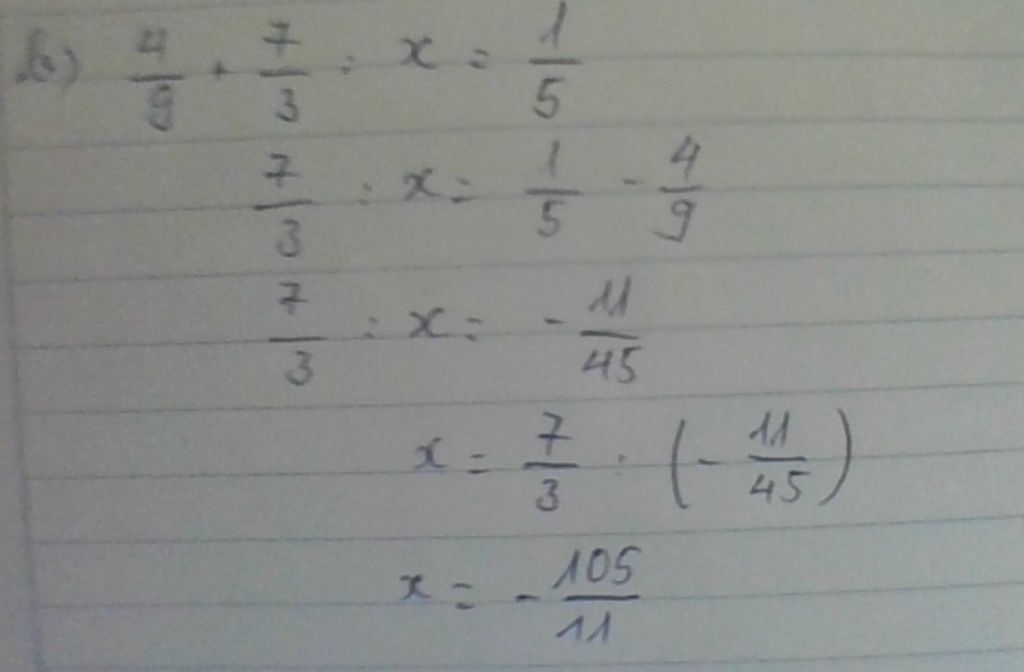 b) 4/9 + 7/3 : x = 1/5
7/3 : x = 1/5 - 4/9
7/3 : x = - 11/45
x = 7/3 : (- 11/45)
x = - 105/11